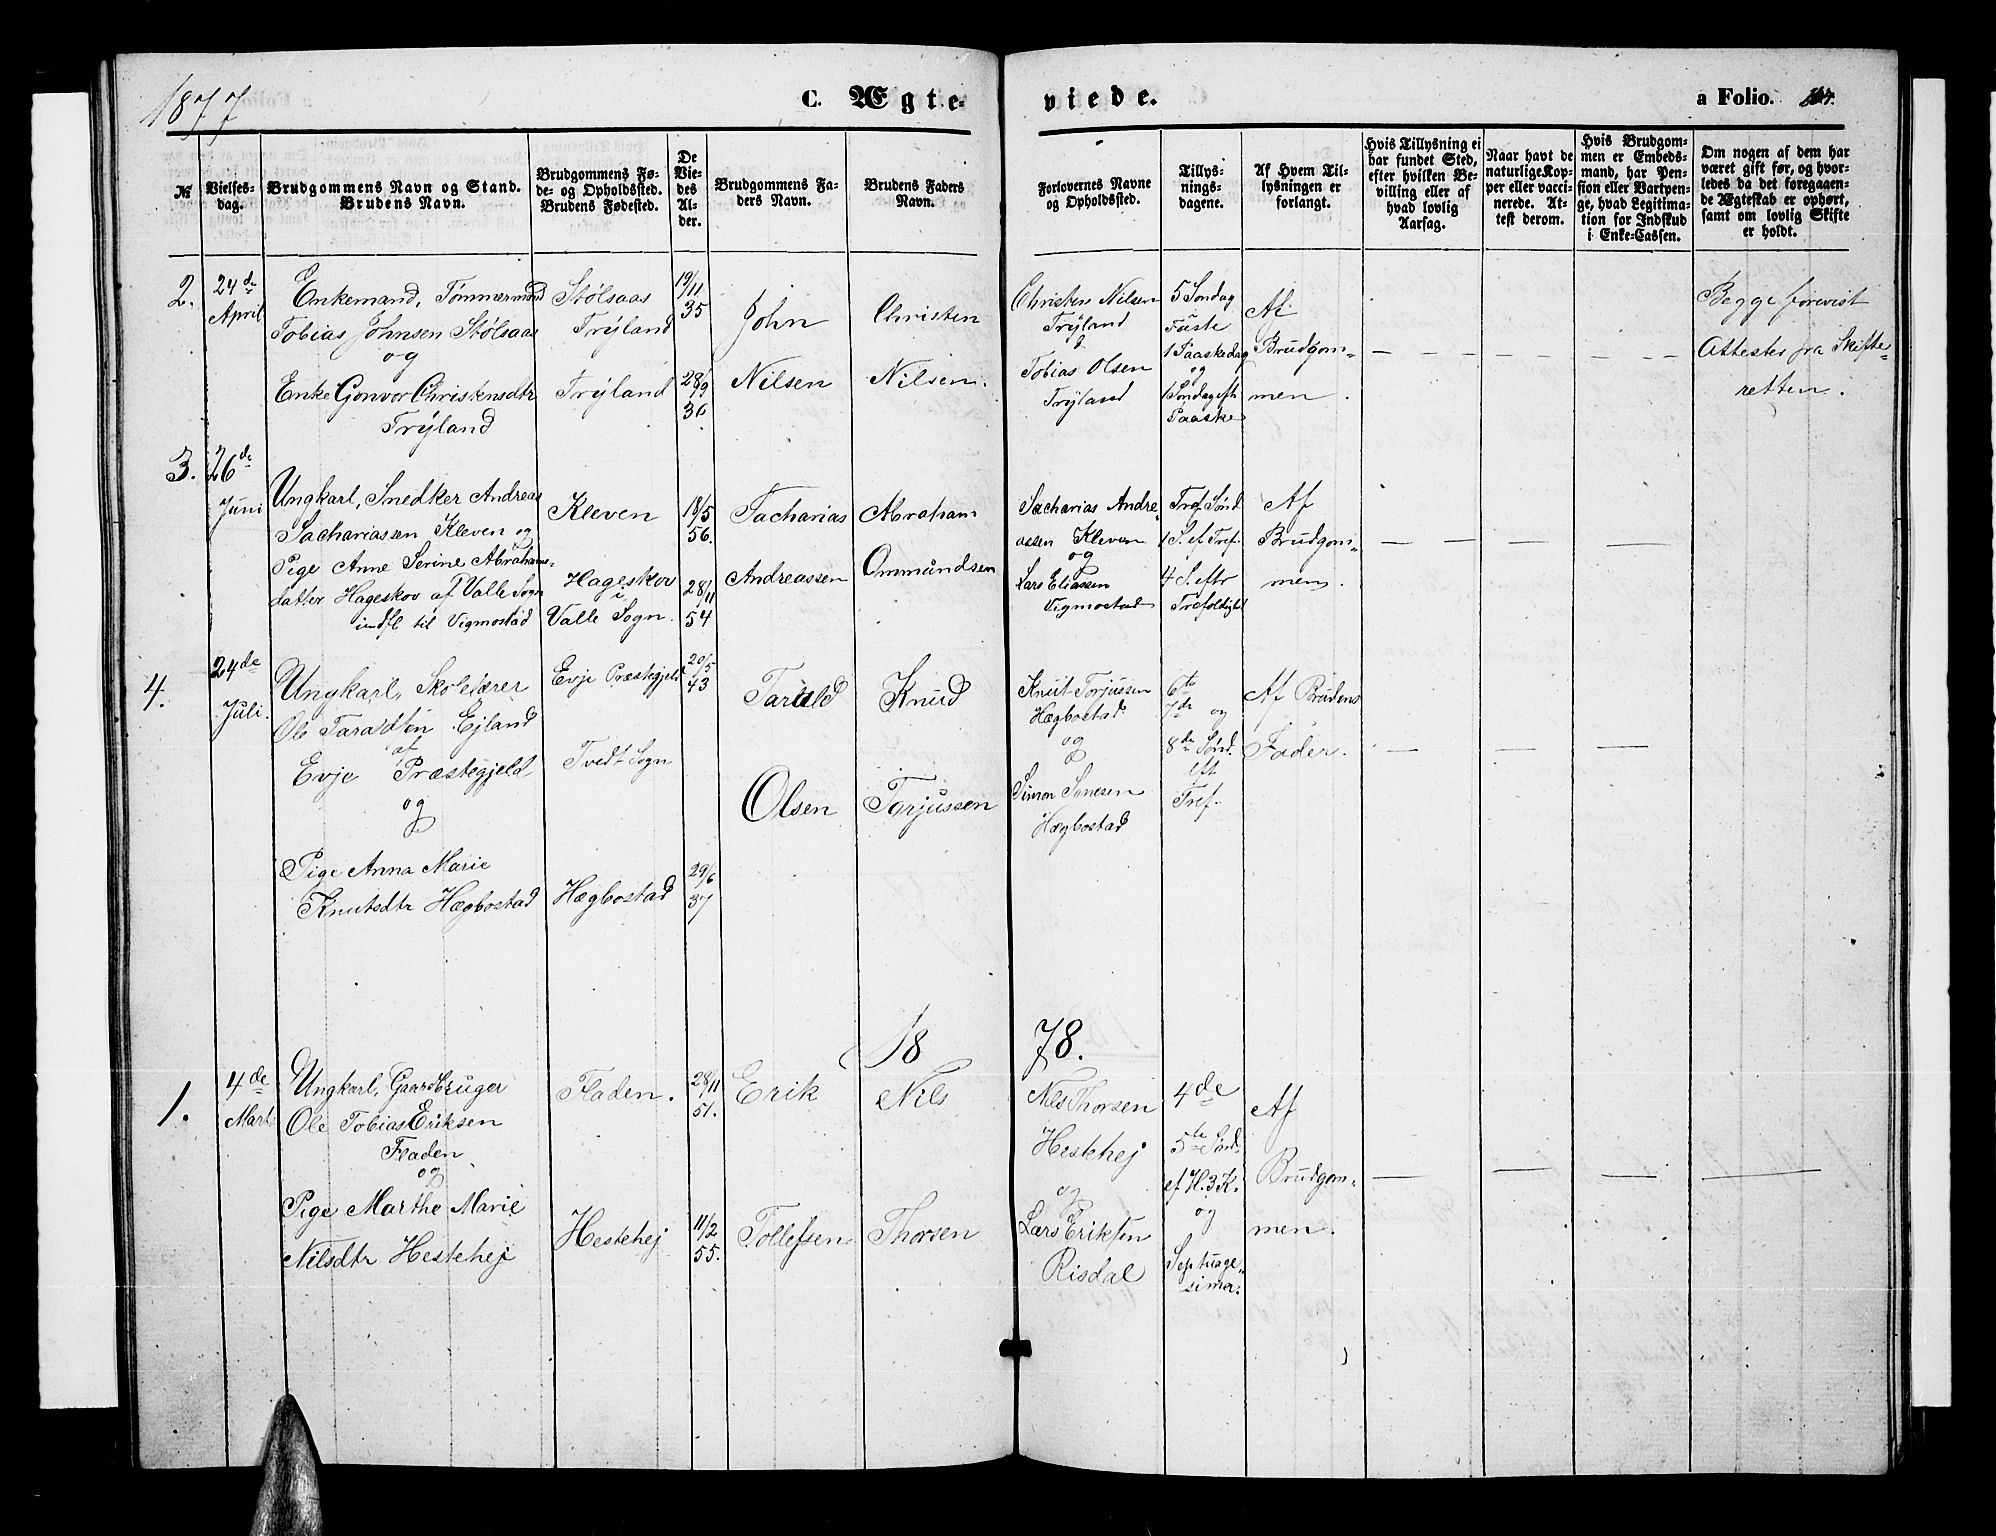 1877
C. Ægte-
viede.
a Folio.
№
Vielses-
dag.
Brudgommens Navn og Stand.
Brudens Navn.
Brudgommens Fø-
de- og Opholdssted.
Brudens Fødested.
De
Vie-
des
Al-
der.
Brudgommens Fa-
ders Navn.
Brudens Faders
Navn.
Forlovernes Navne
og Opholdssted.
Tillys-
nings-
dagene.
Af Hvem Til-
lysningen er
forlangt.
Hvis Tillysning ei
har fundet Sted,
efter hvilken Be-
villing eller af
hvad lovlig
Aarsag.
Naar havt de
naturlige Kop-
per eller vacci-
nerede. At-
test derom.
Hvis Brudgom-
men er Embeds-
mand, har Pen-
sion eller Vartpen-
ge, hvad Legitima-
tion for Indskud
i Enke-Cassen.
Om nogen af dem har
været gift før, og hvor-
ledes da det foregaaen-
de Ægteskab er ophørt,
samt om lovlig Skifte
er holdt.
2.
24de
April
Enkemand, Tømmermand
Tobias Johnsen Stølsaas
og
Enke Gonvor Christensdtr
Trÿland
Stølsaas
Trÿland
Trÿland
19/11
35
28/9
36
John
Nilsen
Christen
Nilsen.
Christen Nilsen
Trÿland
Tobias Olsen
Trÿland
5 Søndag
Faste
1 Paaskedag
og
1 Søndag eft
Paaske
Af
Brudgom-
men.
Begge forevist
Attester fra Skifte-
retten.
3.
26de
Juni
Ungkarl, Snedker Andreas
Sachariassen Kleven og
Pige Anne Serine Abrahams-
datter Hageskov af Valle Sogn
indfl til Vigmostad
Kleven
Hageskov
i
Valle Sogn.
18/5
56.
28/11
54
Sacharias
Andreassen
Abraham
Ommundsen
Sacharias Andre-
assen Kleven
og
Lars Eliassen
Vigmostad
Tref. Sønd
1 S. ef. Tref.
4 S. eftr
Trefoldighd
Af
Brudgom-
men.
4.
24de
Juli.
Ungkarl, Skolelærer
Ole Taraldsen Ejland
af
Evje Præstegjeld
og
Pige Anna Marie
Knutsdtr Hægbostad
Evje Præstegjeld
Tvedt Sogn
Hægbostad
20/5
43
29/6
37
Tarald
Olsen
Knud
Torjussen
Knut Torjussen
Hægbostad
og
Simon Sonesen
Hægbostad
6te
7de og
8de Sønd.
eft
Tref.
Af Brudens
Fader.
18
78.
1.
4de
Marts
Ungkarl, Gaardbruger
Ole Tobias Eriksen
Fladen
og
Pige Marthe Marie
Nilsdtr Hestehej
Fladen.
Hestehej
28/11
51.
11/2
55.
Erik
Tollefsen
Nils
Thorsen
Nils Thorsen
Hestehej
og
Lars Eriksen
Risdal
4de
5te Sønd.
ef. H. 3 K.
og
Septuage-
sima.
Af
Brudgom-
men.